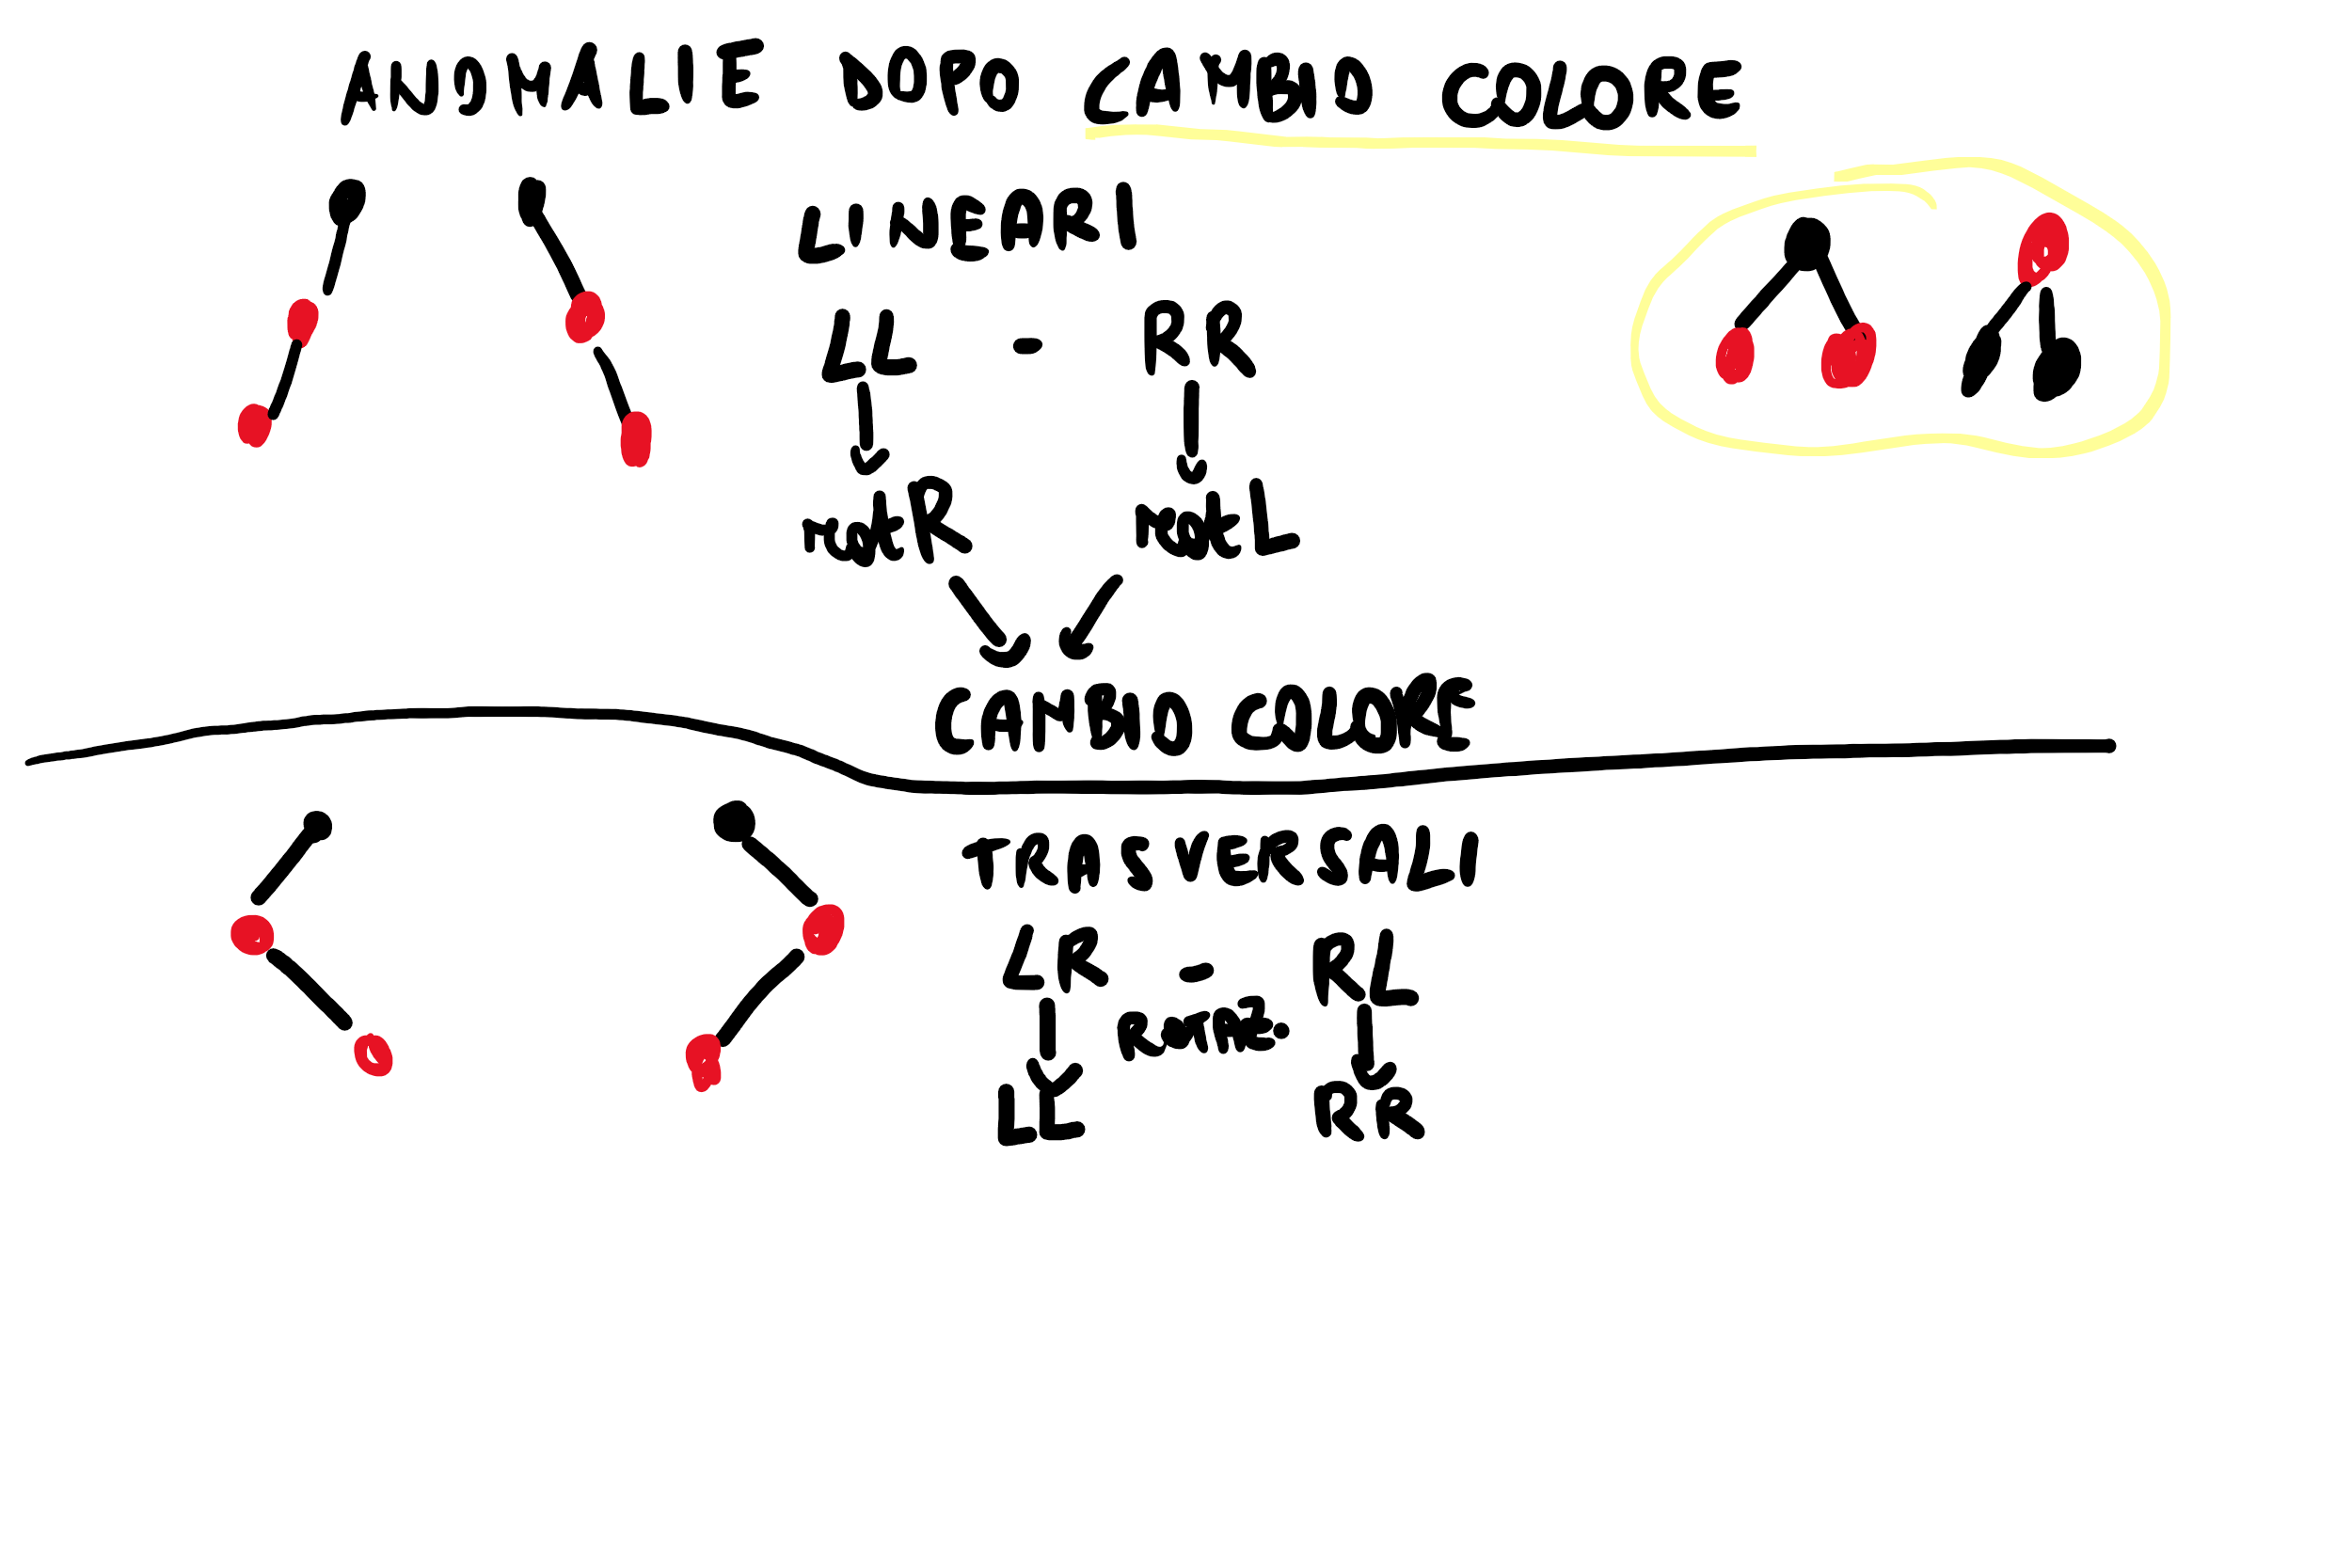 ANOMALIE DOPO CAMBIO COLORE
LINEARI
LL - RR
rotR rotL
CAMBIO COLORE
TRASVERSALI
LR - RL
ROTAZ.
LL RR